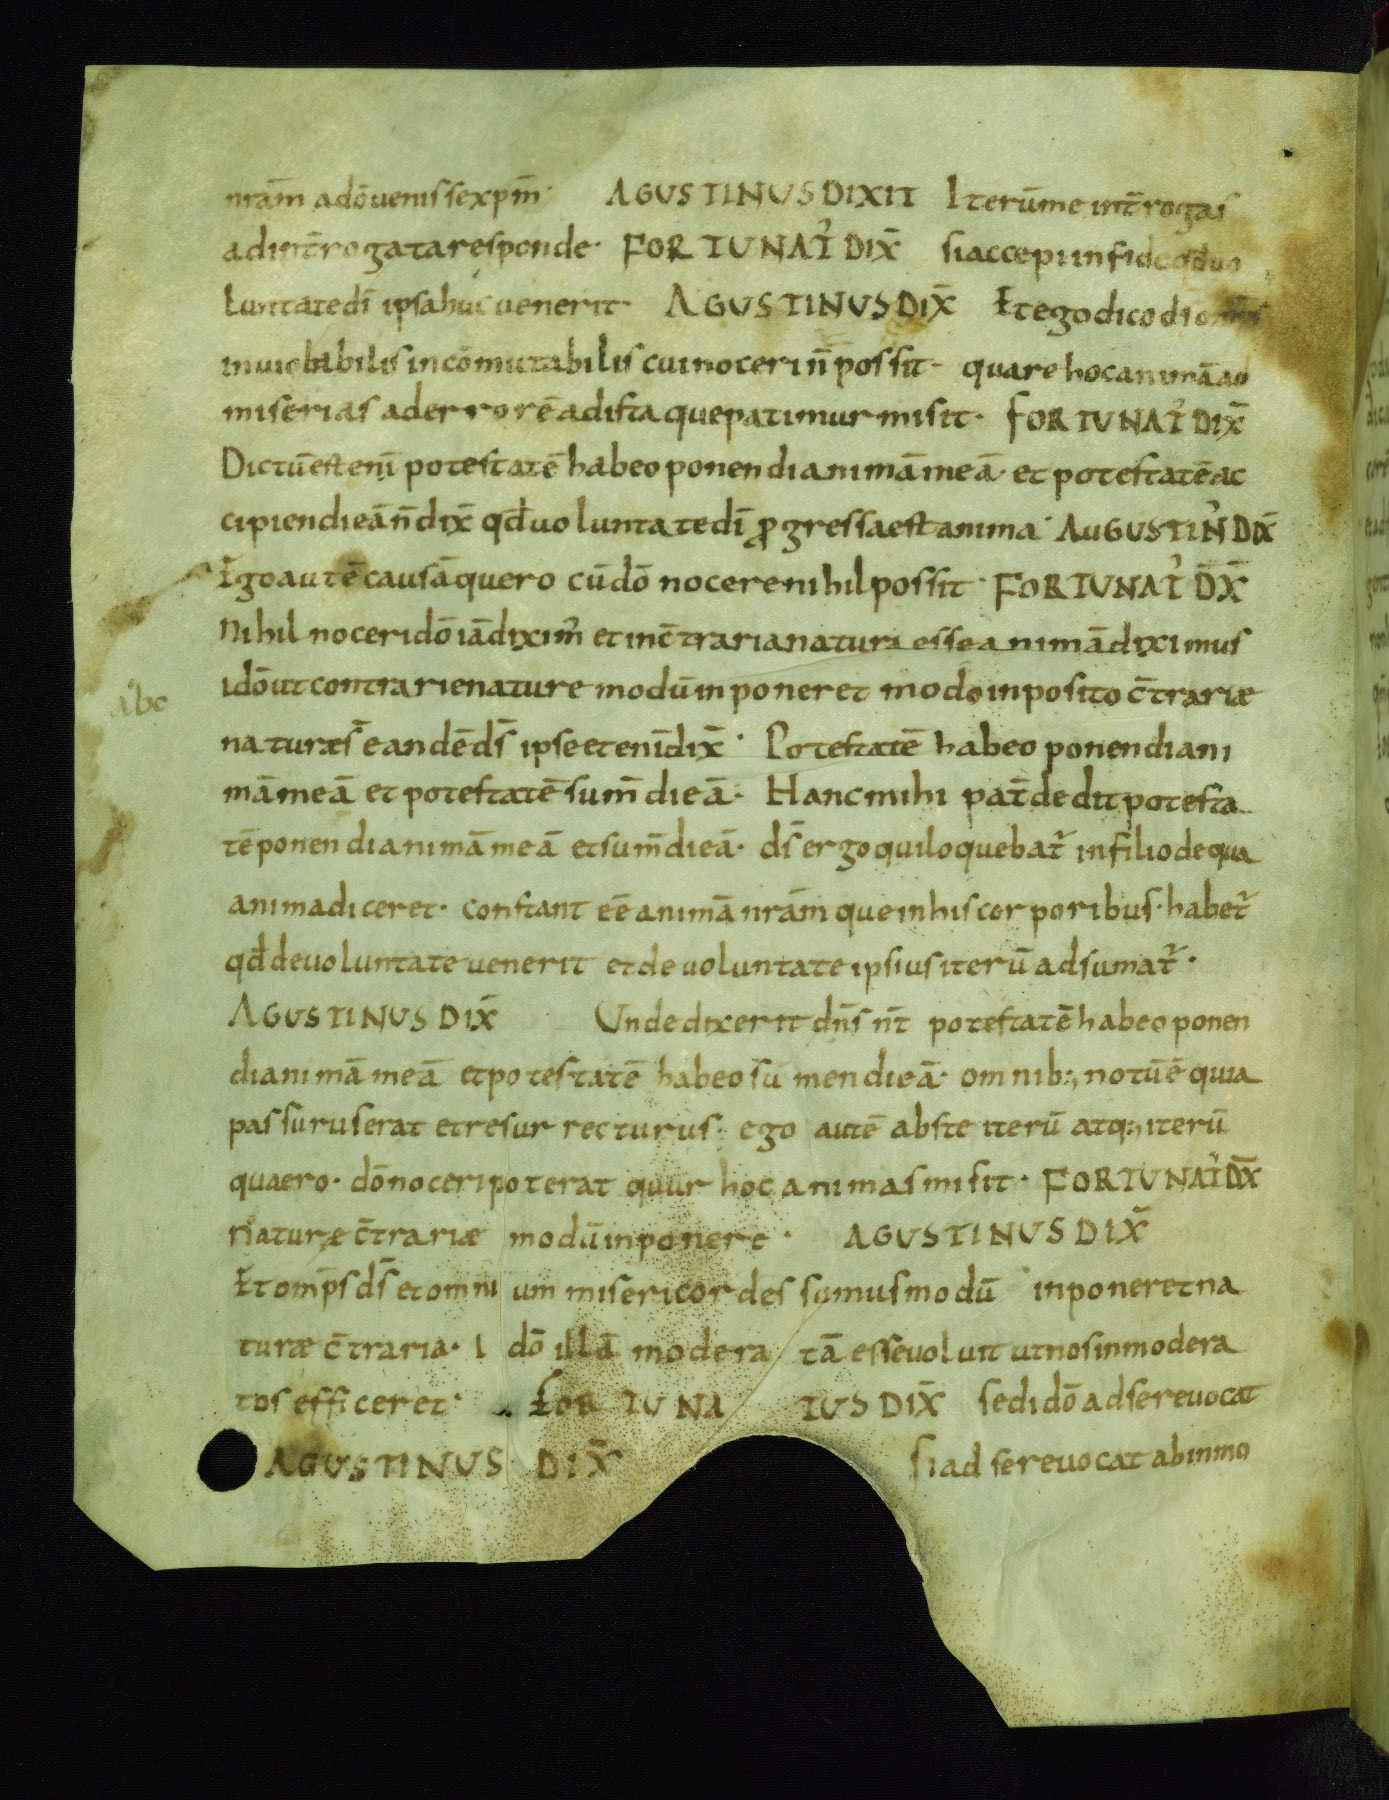 nrām adō venisse xp̄m· AGUSTINUS DIXIT Iterū me int̄rogas
ad int̄rogata responde· FORTUNAT᾿ DIX̄ si accepi in fide qd̄ uo
luntate dī ipsa huc venerit· AGUSTINUS DIX̄ Et ego dico dī
inviolabilis incōmutabilis cui noceri n̄ possit· quare hoc animā ad
miserias ad errorē ad ista que patimur misit· FORTUNAT᾿ DIX̄
Dictū est enī potestatē habeo ponendi animā meā· et potestatē ac
cipiendi eā n̄ dix̄ qd̄ voluntate dī p̱gressa est anima· AUGUSTIN᾿ DIX̄
Ego autē causā quero cū dō nocere nihil possit· FORTUNAT᾿ D̄X̄
Nihil noceri dō iā dixim᾿ et in c̄traria natura esse animā diximus
idō ut contrarie nature modū inponeret modo inposito c̄trariæ
naturæ s̄ eandē ds̄ ipse etenī dix̄· Potestatē habeo ponendi ani
mā meā et potestatē sum̄di eā· Hanc mihi pat̄ dedit potesta
tē ponendi animā meā et sum̄di eā· ds̄ ergo qui loquebat᾿ in filio de qua
anima diceret· constant eē animā nrām que in his corporibus· habet᾿
qd̄ de voluntate venerit et de voluntate ipsius iterū adsumat᾿·
AGUSTINUS DIX̄ Unde dixerit dn̄s nr̄ potestatē habeo ponen
di animā meā et potestatē habeo sumendi eā· omnib:, notū ē quia
passurus erat et resurrecturus· ego autē abs te iterū atq:, iterū
quaero· dō noceri poterat quur hoc animas misit· FORTUNAT᾿ D̄X̄
Naturæ c̄trariæ modū inponere· AGUSTINUS DIX̄
Et omps̄ ds̄ et omnium misericordes sumus modū inponeret na
turæ c̄traria· Idō illā moderatā esse voluit ut nos inmodera
tos efficeret· FORTUNATUS DIX̄ sed idō ad se revocat
AGUSTINUS DIX̄ si ad se revocat ab inmo
abc